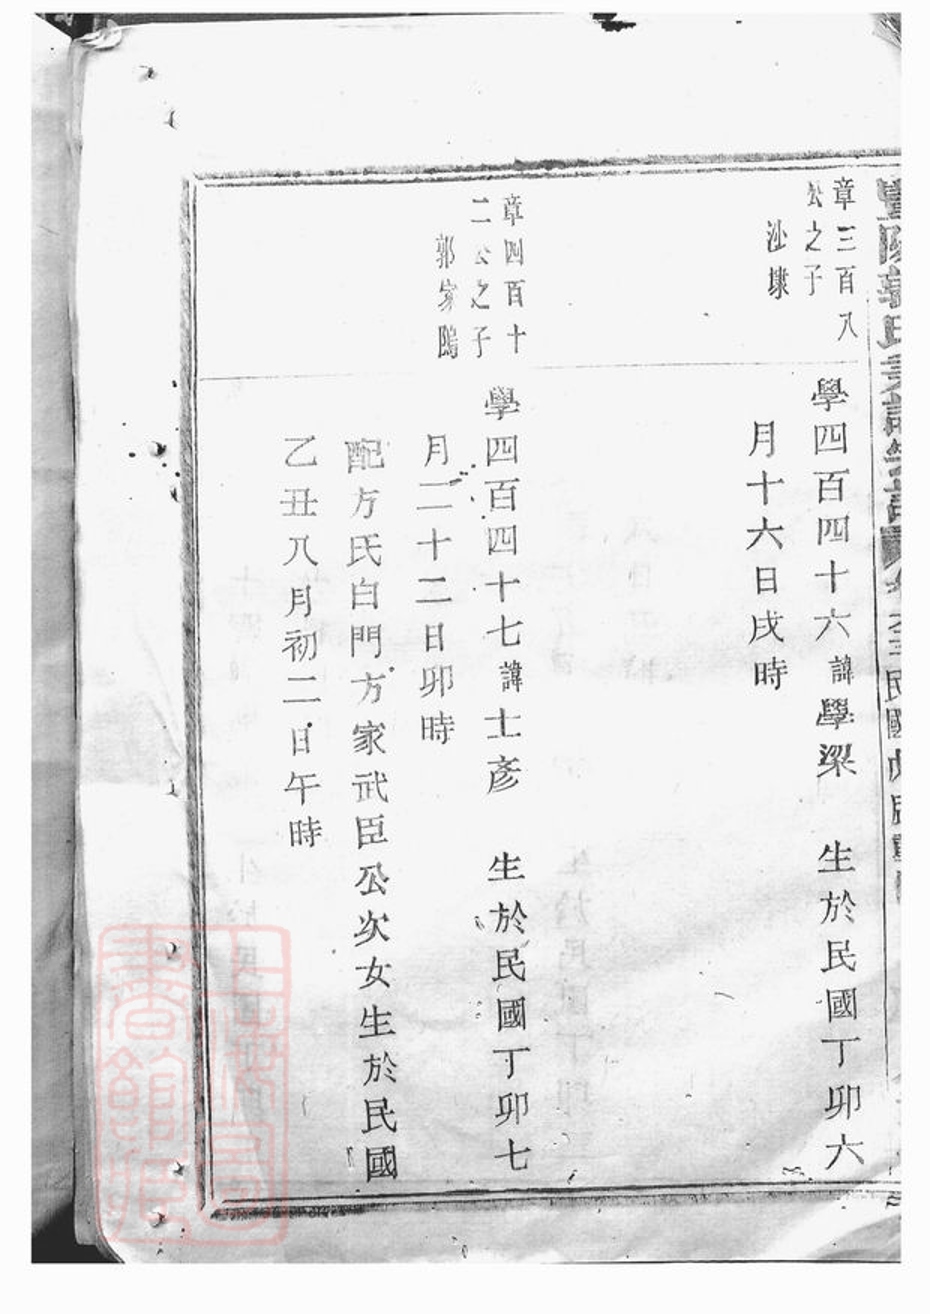 章三百八
公之子
沙埭
學四百四十六諱學梁 生於民國丁卯六
月十六日戌時
章四百十
二公之子
郭家
學四百四十七諱士彥 生於民國丁卯七
月二十二日卯時
配方氏白門方家武臣公次女生於民國
乙丑八月初二日午時